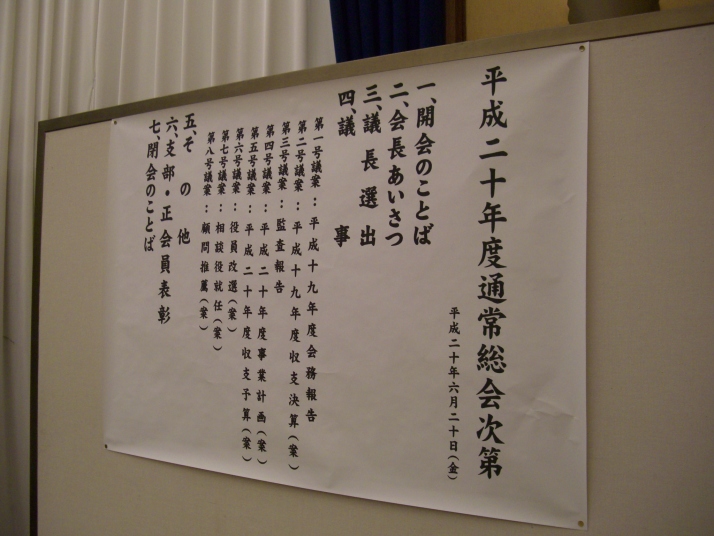 平成二十年度通常総会次第
平成二十年六月二十日(金)
一、開会のことば
二、会長あいさつ
三、議長選出
四、議事
第一号議案：平成十九年度会務報告
第二号議案：平成十九年度収支決算(案)
第三号議案：監査報告
第四号議案：平成二十年度事業計画(案)
第五号議案：平成二十年度収支予算(案)
第六号議案：役員改選(案)
第七号議案：相談役就任(案)
第八号議案：顧問推薦(案)
五、その他
六、支部・正会員表彰
七、閉会のことば